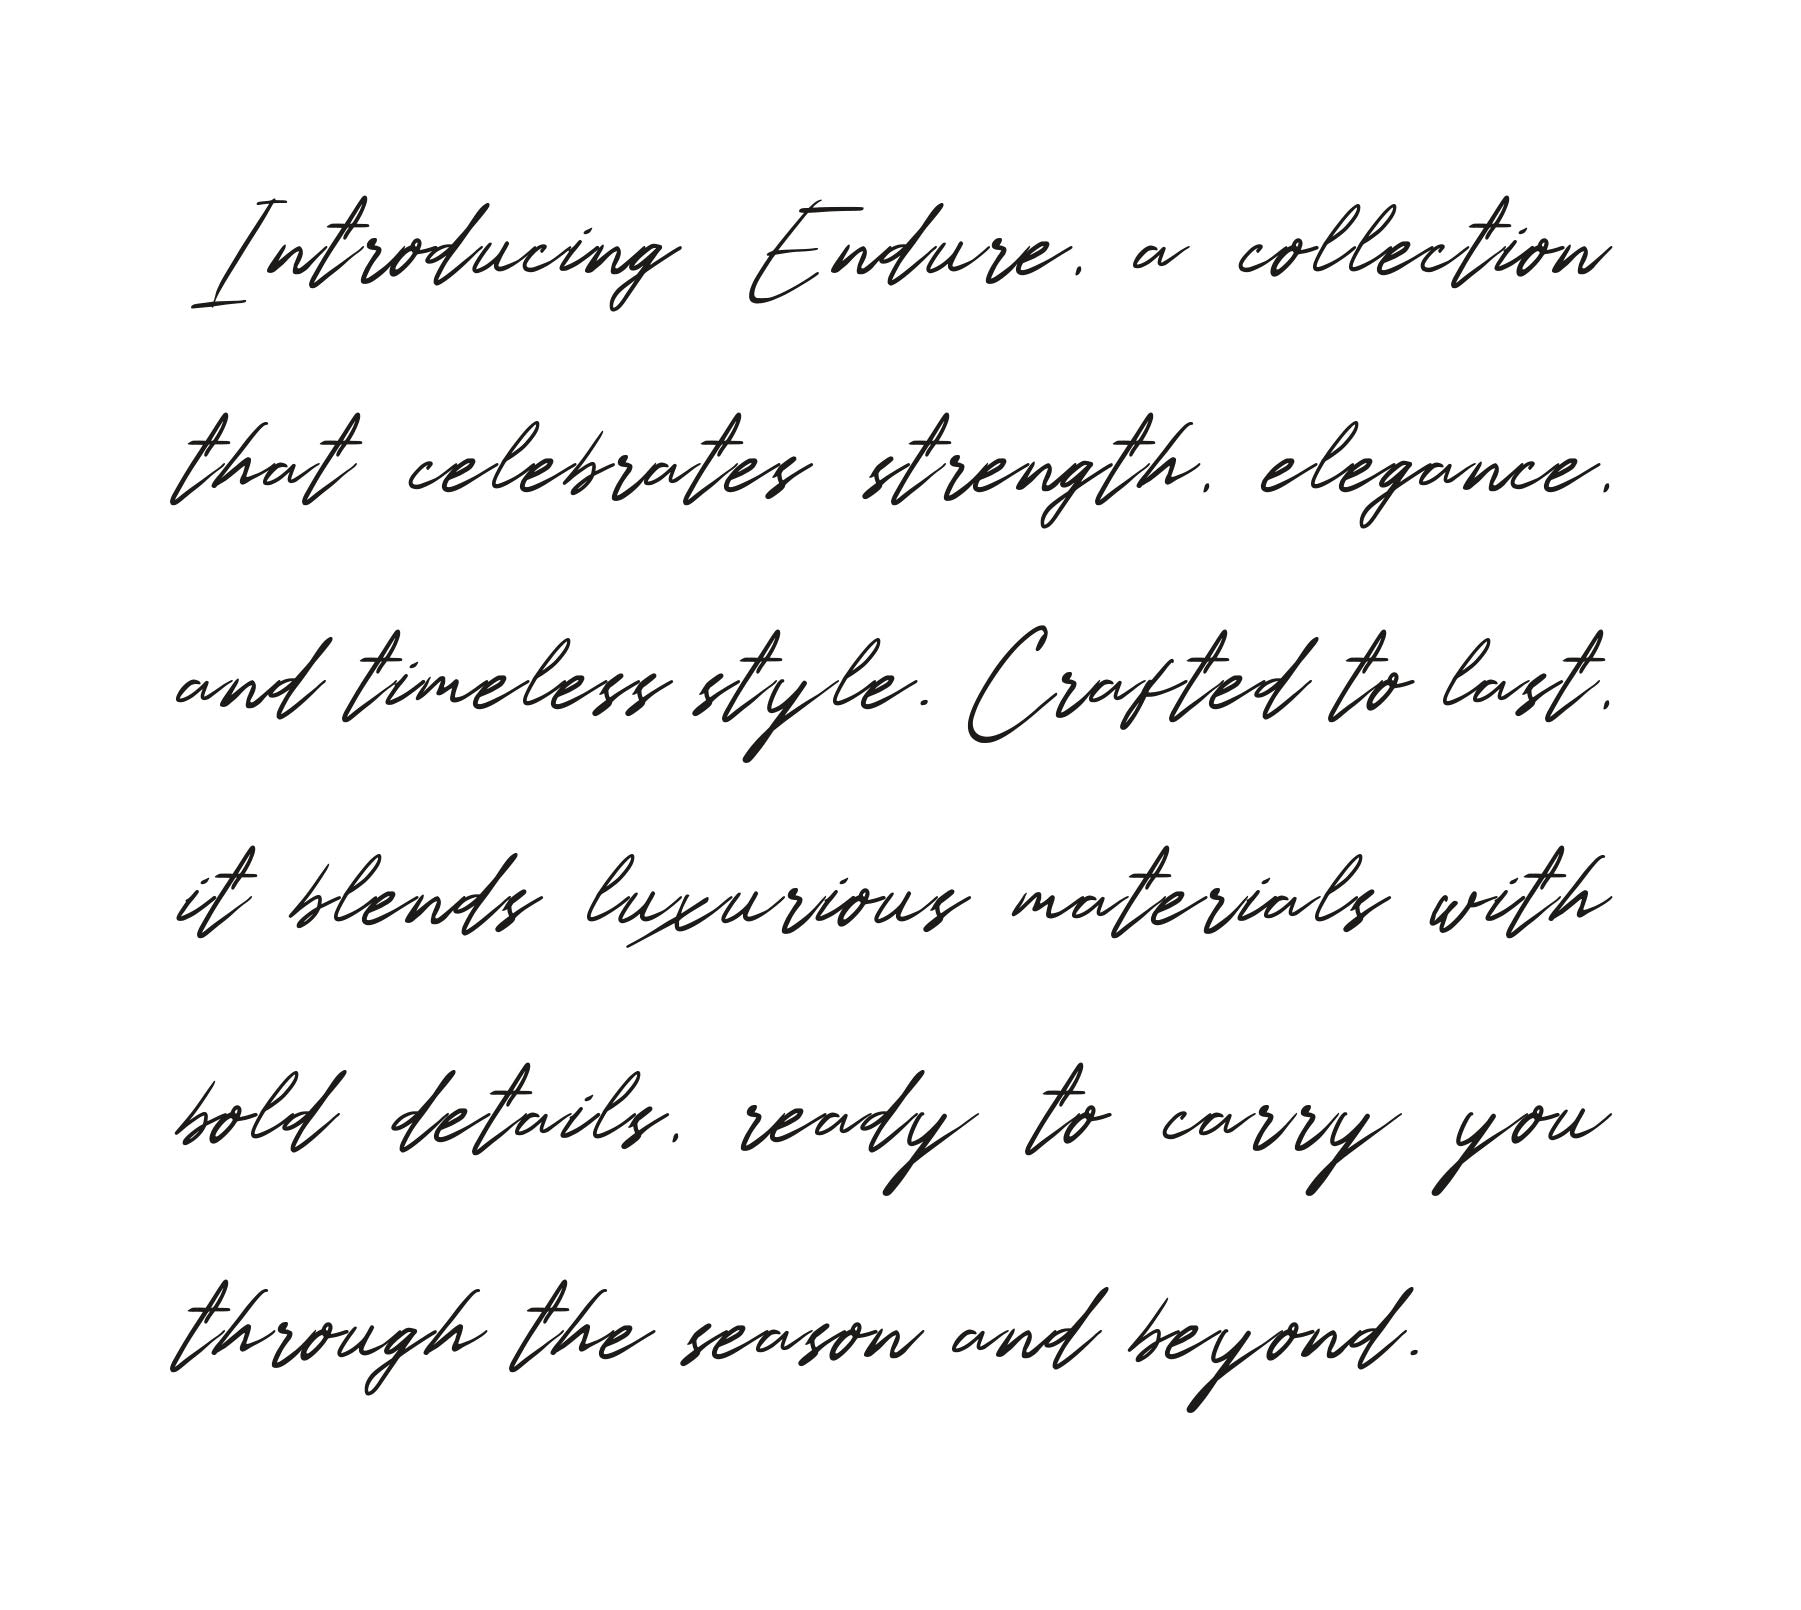 Introducing Endure, a collection
that celebrates strength, elegance,
and timeless style. Crafted to last,
it blends luxurious materials with
bold details, ready to carry you
through the season and beyond.